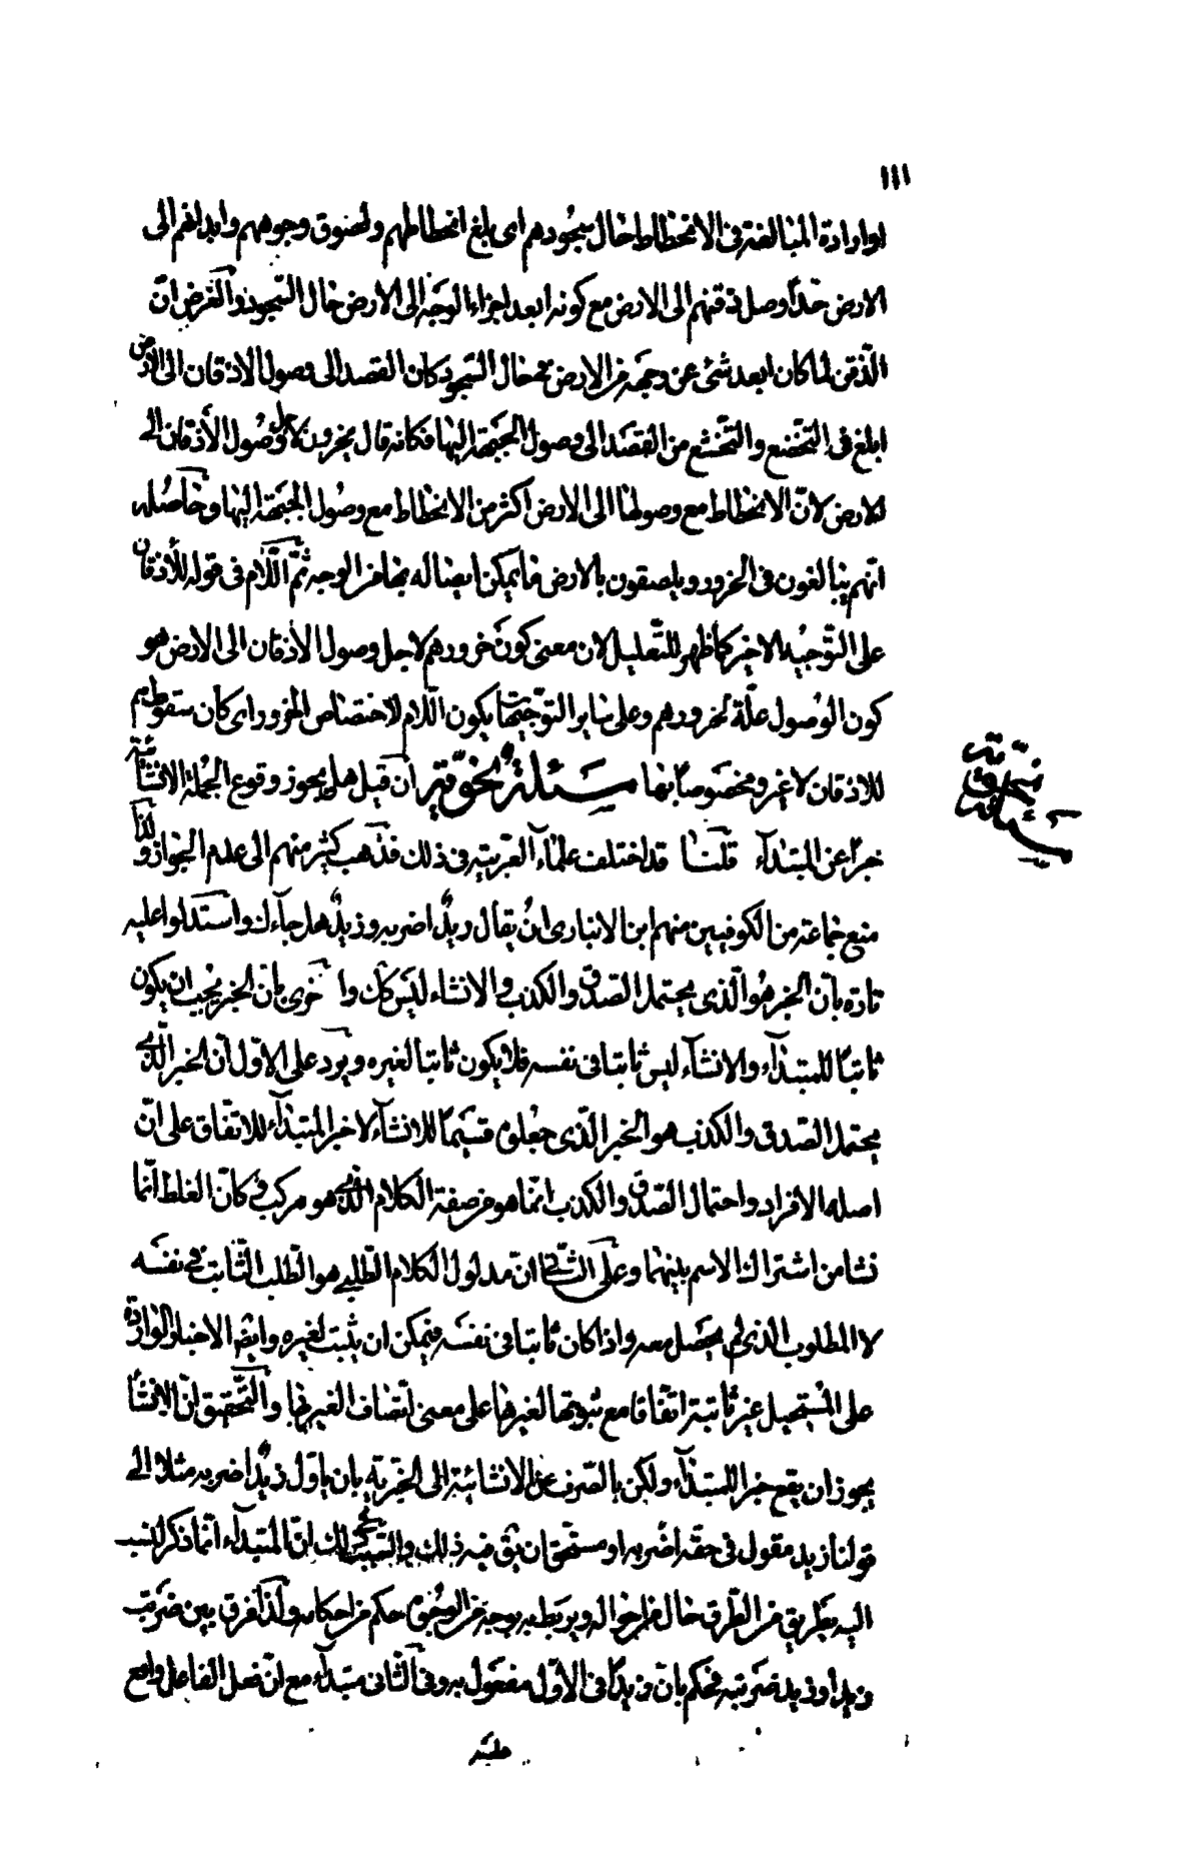 ١١١
او ارادة المبالغة فی الانحطاط حال سجُودهم ای بلغ انحطاطهم ولصوق وجوههم وابدانهم الی
الارض حدّا وصل ذقنهم الی الارض مع کونه ابعد اجزاء الوجه الی الارض حال السّجود والغرض انّ
الذّقن لما کان ابعد شئ عن وجهه من الارض حال السّجود کان القصد الی وصول الاذقان الی الارض
ابلغ فی التخضع والتّخشع من القصد الی وصول الجبهة الیها فکانه قال یخرون لاجل وصُول الأذقان الی
الارض لانّ الانحطاط مع وصولها الی الارض اکثر من الانحطاط مع وصُول الجبهة الیها وحاصُله
انّهم یبالغون فی الخرور ویلصقون بالارض ما یمکن ایصاله بها من الوجه ثمّ اللّام فی قوله للأذقان
علی التّوجیُه الاخیر کما ظهر للتّعلیل لان معنی کون خرورهم لاجل وصول الأذقان الی الارض هو
کون الوُصول علّة لخرورهم وعلی سایر التوّجیهات یکون اللّام لاختصاص الخرور ای کان سقوطهم
للاذقان لا غیر ومخصُوصاً بها مسَئلة نحوّیة ان قیل هل یجوز وقوع الجُملة الانشائیّة
خبرًا عن المبتدآء قلنا قد اختلف علمآء العربیّة فی ذلک فذهب کثیر منهم الی عدم الجواز ولذا
منع جماعة من الکوفیین منهم ابن الانباری انُ یقال زیدٌ اضربه وزیدٌ هل جآءک واستدلوا علیه
تارة بأن الخبر هُو الّذی یحتمل الصّدق والکذب والانشاء لیس کک واخری بانّ الخبر یجُب ان یکون
ثابتًا للمبتدآء والانشآء لیس ثابتا فی نفسه فلا یکون ثابتا لغیره ویرد علی الاوّل انّ الخبر الّذی
یحتمل الصّدق والکذب هو الخبر الّذی جعلوه قسیمًا للانشآء لا خبر المبتدآء للاتّفاق علی انّ
اصله الأفراد واحتمال الصّدق والکذب انّما هو من صفة الکلام الّذی هو مرکب وکانّ الغلط انّما
نشا من اشتراک الاسم بینهما وعلی الثّانی انّ مدلول الکلام الطّلبی هو الطّلب الثّابت فی نفسَه
لا المطلوب الذی لم یحصَل معه واذا کان ثابتا فی نفسَه فیمکن ان یثبت لغیره وایضا الاخبار الواردة
علی المُستحیل غیر ثابتة اتّفاقا مع ثبوتها لغیرها علی معنی اتّصاف الغیر بها والتّحقیق انّ الانشآء
یجوز ان یقع خبرا للمبتدآء ولکن بالصّرف عن الانشائیّة الی الخبریّة بان یاوّل زیدٌ اضربه مثلا الی
قولنا زید مقول فی حقّه اضربه او مستحق ان یق فیه ذلک والسّبب فی ذلک انّ المبتدآء انّما ذکر لینسب
الیه بطریق من الطّرق حال من احواله ویربط به بوجه من الوجُوه حکم من احکامه ولذا فرق بین ضربت
زیدا وزید ضرَبته فحکم بانّ زیدًا فی الاوّل مفعول به وفی الثّانی مبتدآء مع انّ فعل الفاعل واقع
علیه